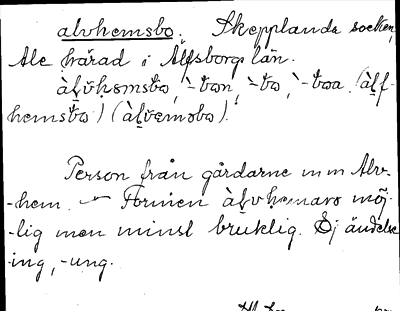 alvhemsbo. Skepplanda socken,
Ale härad i Älfsborgs län.
àḷv̌hemsbo, `-bon, `-bo, `-boa (àḷf-
hemsbo) (àḷvemsbo).
Person från gårdarne m m Alv-
-hem. – Formen àḷvhemare möj-
-lig men minst bruklig. Ej ändelse
-ing, -ung.